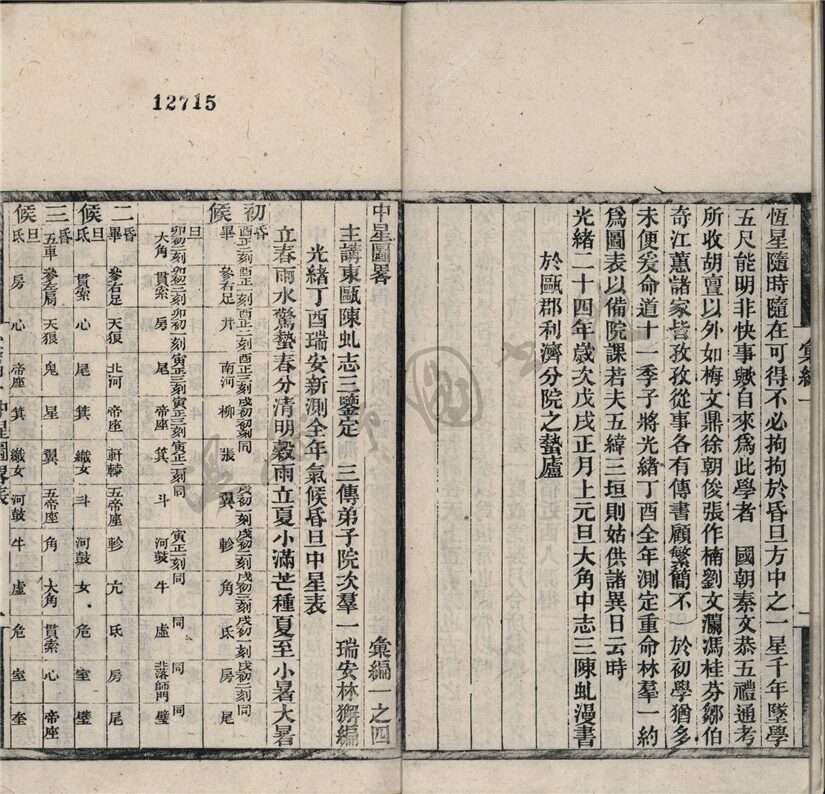 恆星隨時隨在可得不必拘拘於昏旦方中之一星千年墜學
五尺能明非快事歟自來爲此學者　國朝秦文恭五禮通考
所收胡亶以外如梅文鼎徐朝俊張作楠劉文瀾馮桂芬鄒伯
奇江蕙諸家皆孜孜從事各有傳書顧繁簡不一於初學猶多
未便爰命道十一季子將光緒丁酉全年測定重命林羣一約
爲圖表以備院課若夫五緯三垣則姑供諸異日云時
光緒二十四年歲次戊戌正月上元旦大角中志三陳虬漫書
於甌郡利濟分院之蟄廬
彙編一
12715
中星圖畧
彙編一之四
主講東甌陳虬志三鑒定　三傳弟子院次羣一瑞安林獬編
光緒丁酉瑞安新測全年氣候昏旦中星表
立春雨水驚蟄春分清明穀雨立夏小滿芒種夏至小暑大暑
初候
昏
畢 參右足 井 南河 柳 張 翼 軫 角 氐 房 尾
旦
大角 貫索 房 尾 帝座 箕 斗 河鼓 牛 虛 北落師門 壁
二候
昏 畢 參右足 天狼 北河 帝座 軒轅 五帝座 軫 亢 氐 房 尾
旦 氐 貫索 心 尾 箕 織女 斗 河鼓 女 危 室 壁
三候
昏 五車 參左肩 天狼 鬼 星 翼 五帝座 角 大角 貫索 心 帝座
旦 氐 房 心 帝座 箕 織女 河鼓 牛 虛 危 室 奎